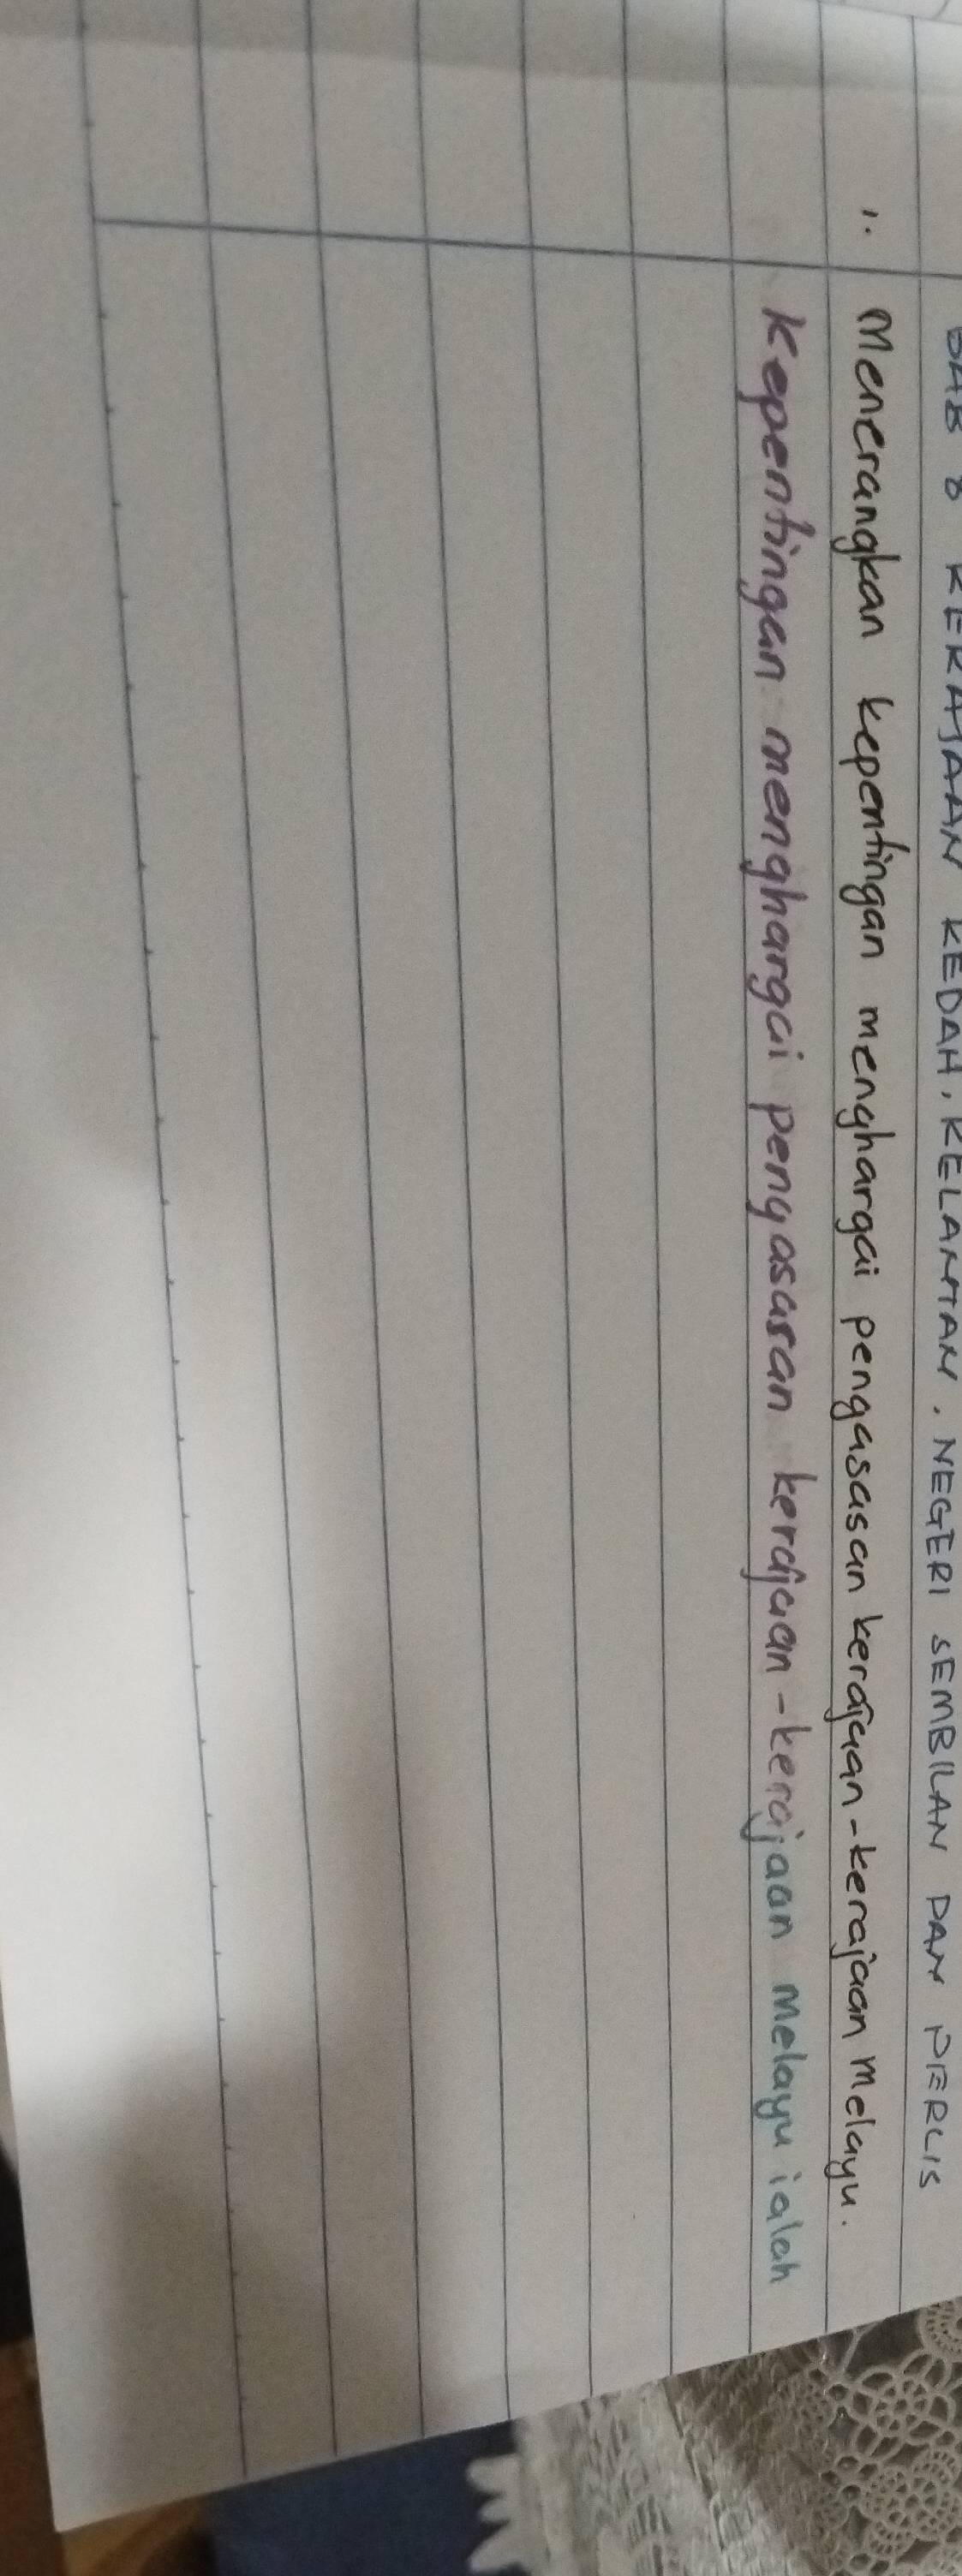 BAB 8 KERAJAAN KEDAH, KELANTAN, NEGERI SEMBILAN DAN PERLIS
1. Menerangkan kepentingan menghargai pengasasan kerajaan-kerajaan Melayu.
Kepentingan menghargai pengasasan kerajaan-kerajaan Melayu ialah